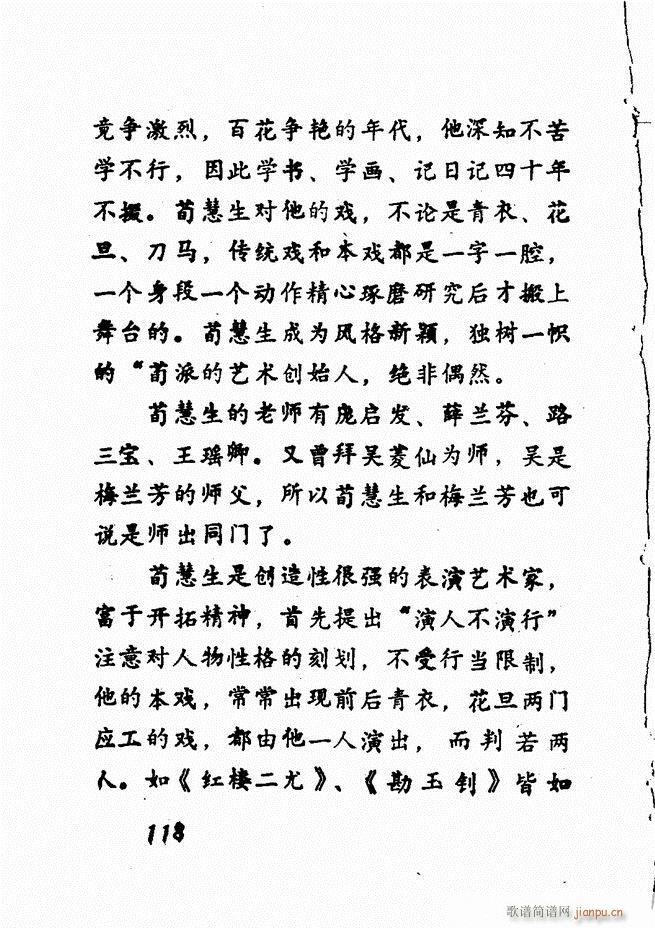 竟争激烈，百花争艳的年代，他深知不苦
学不行，因此学书、学画、记日记四十年
不掇。荀慧生对他的戏，不论是青衣、花
旦、刀马，传统戏和本戏都是一字一腔，
一个身段一个动作精心琢磨研究后才搬上
舞台的。荀慧生成为风格新颖，独树一帜
的“荀派的艺术创始人，绝非偶然。
荀慧生的老师有庞启发、薛兰芬、路
三宝、王瑶卿。又曾拜吴菱仙为师，吴是
梅兰芳的师父，所以荀慧生和梅兰芳也可
说是师出同门了。
荀慧生是创造性很强的表演艺术家，
富于开拓精神，首先提出“演人不演行”
注意对人物性格的刻划，不受行当限制，
他的本戏，常常出现前后青衣，花旦两门
应工的戏，都由他一人演出，而判若两
人。如《红楼二尤》、《勘玉钏》皆如
118
歌谱简谱网 jianpu.cn